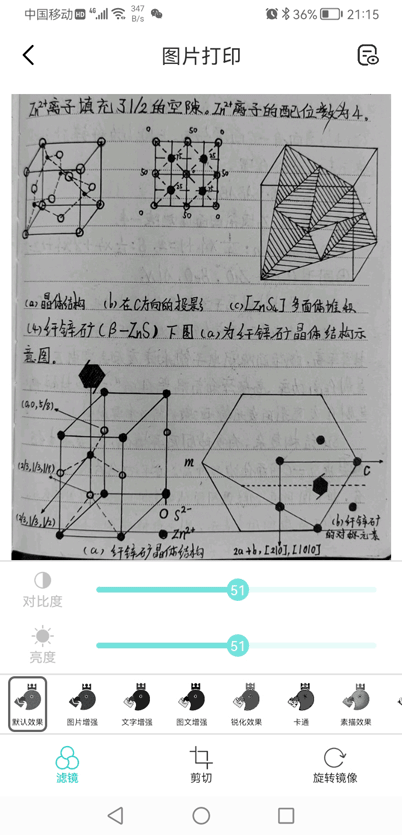 中国移动 HD 4G 347 B/s 36% 21:15
图片打印
Zn²⁺离子填充了1/2的空隙。Zn²⁺离子的配位数为4。
0 50 0
75 25
50 0 50
25 75
0 50 0
(a)晶体结构 (b)在C方向的投影 (c)[ZnS₄]多面体堆积
(4)纤锌矿(β-ZnS)下图(a)为纤锌矿晶体结构示
意图。
(0,0,5/8)
m C
(2/3,1/3,1/8)
(2/3,1/3,1/2)
S²⁻
Zn²⁺
(b)纤锌矿
的对称元素
(a)纤锌矿晶体结构 2a+b,[210],[1010]
51
对比度
51
亮度
默认效果 图片增强 文字增强 图文增强 锐化效果 卡通 素描效果
滤镜 剪切 旋转镜像